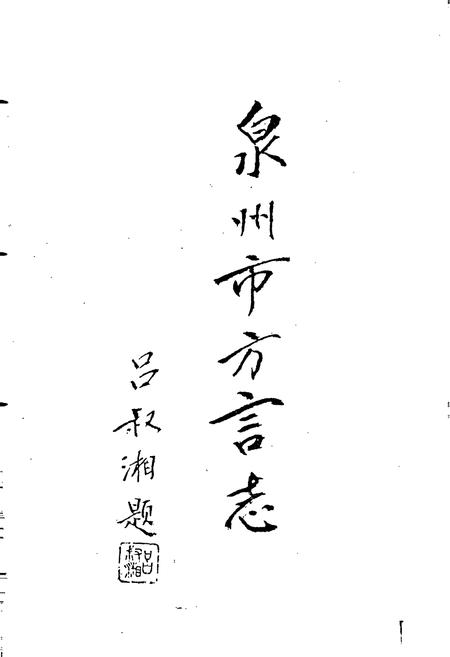 泉州市方言志
吕叔湘题
吕叔湘